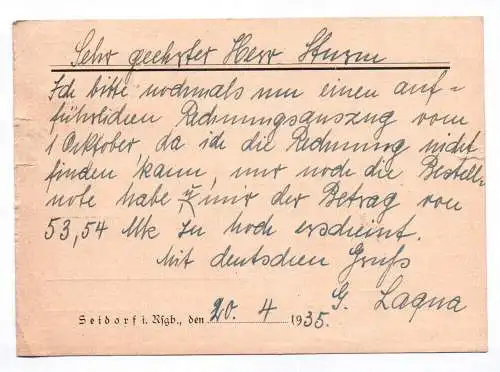 Sehr geehrter Herr Sturm
Ich bitte nochmals um einen auf=
führlichen Rechnungsauszug vom
1 Oktober, da ich die Rechnung nicht
finden kann, nur noch die Bestell-
note habe u. mir der Betrag von
53,54 Mk zu hoch erscheint.
Mit deutschen Gruß
G. Laqua
Seidorf i. Rsgb., den 20. 4 1935.